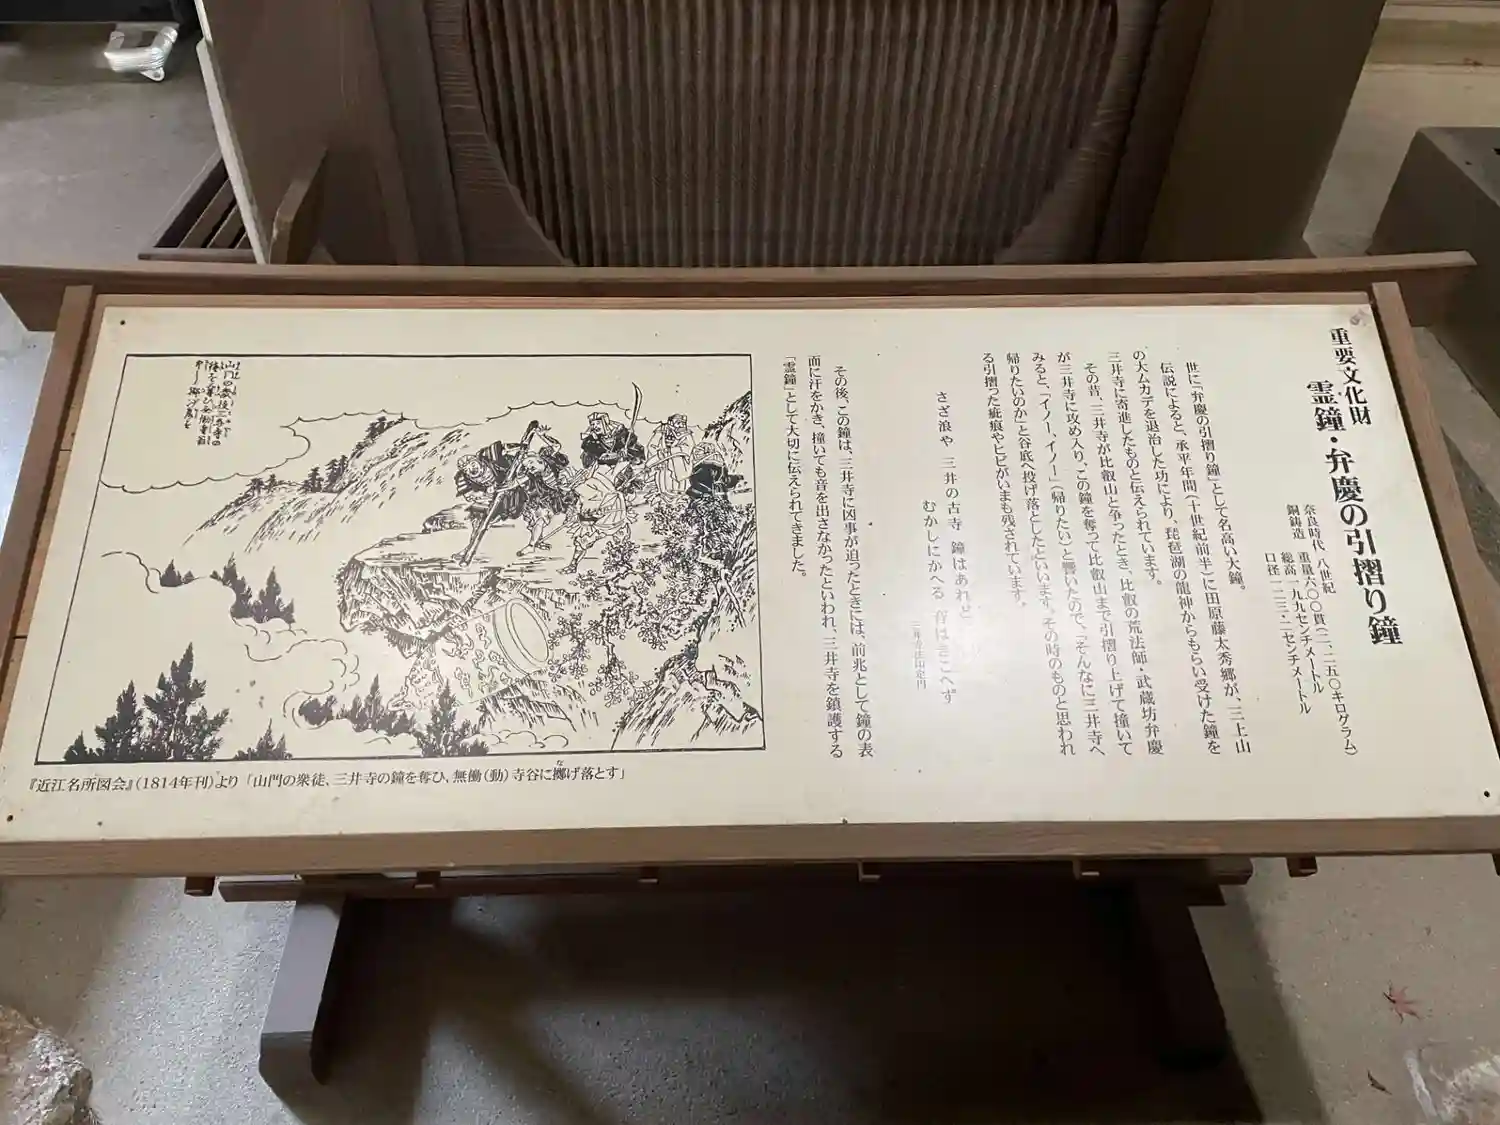 重要文化財
霊鐘・弁慶の引摺り鐘
奈良時代 八世紀 重量六〇〇貫(二、二五〇キログラム)
銅鋳造 総高一九九センチメートル
口径一二三・二センチメートル
世に「弁慶の引摺り鐘」として名高い大鐘。
伝説によると、承平年間(十世紀前半)に田原藤太秀郷が、三上山
の大ムカデを退治した功により、琵琶湖の龍神からもらい受けた鐘を
三井寺に寄進したものと伝えられています。
その昔、三井寺が比叡山と争ったとき、比叡の荒法師・武蔵坊弁慶
が三井寺に攻め入り、この鐘を奪って比叡山まで引摺り上げて撞いて
みると、「イノー、イノー」(帰りたい)と響いたので、「そんなに三井寺へ
帰りたいのか」と谷底へ投げ落としたといいます。その時のものと思われ
る引摺った疵痕やヒビがいまも残されています。
さざ浪や 三井の古寺 鐘はあれど
むかしにかへる 音はきこへず
その後、この鐘は、三井寺に凶事が迫ったときには、前兆として鐘の表
面に汗をかき、撞いても音を出さなかったといわれ、三井寺を鎮護する
「霊鐘」として大切に伝えられてきました。
『近江名所図会』(1814年刊)より「山門の衆徒、三井寺の鐘を奪ひ、無働(動)寺谷に擲げ落とす」